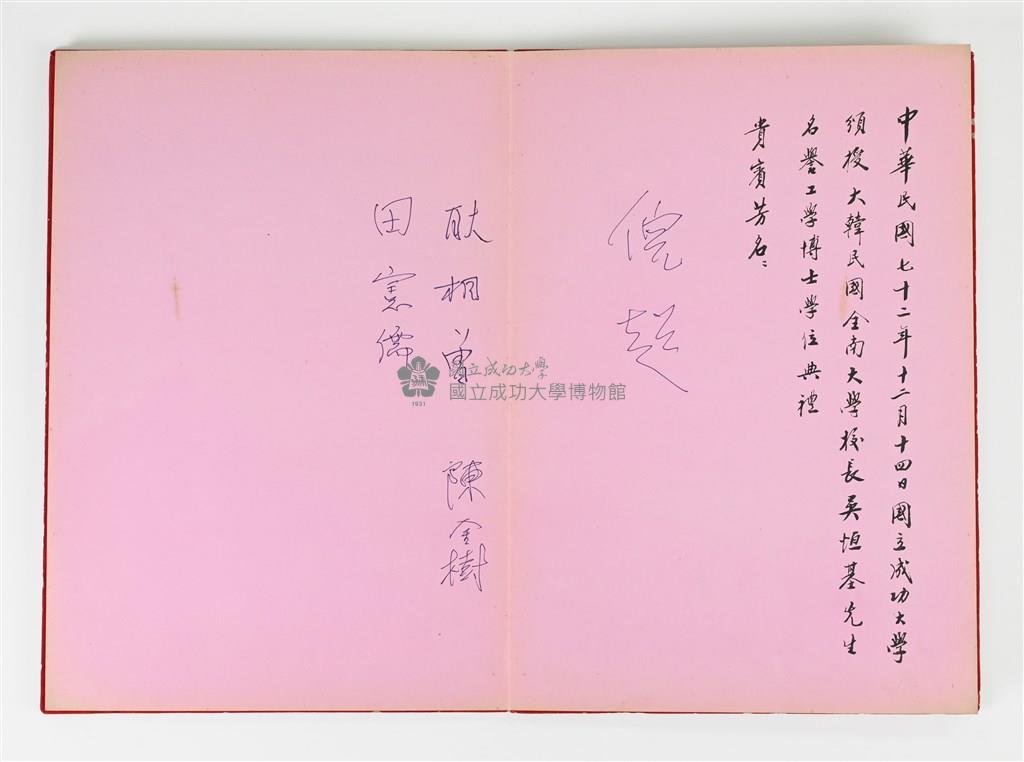 中華民國七十二年十二月十四日國立成功大學
頒授大韓民國全南大學校長吳恒基先生
名譽工學博士學位典禮
貴賓芳名：
倪超
耿相曾
陳金樹
田憲儒
國立成功大學
國立成功大學博物館
1931